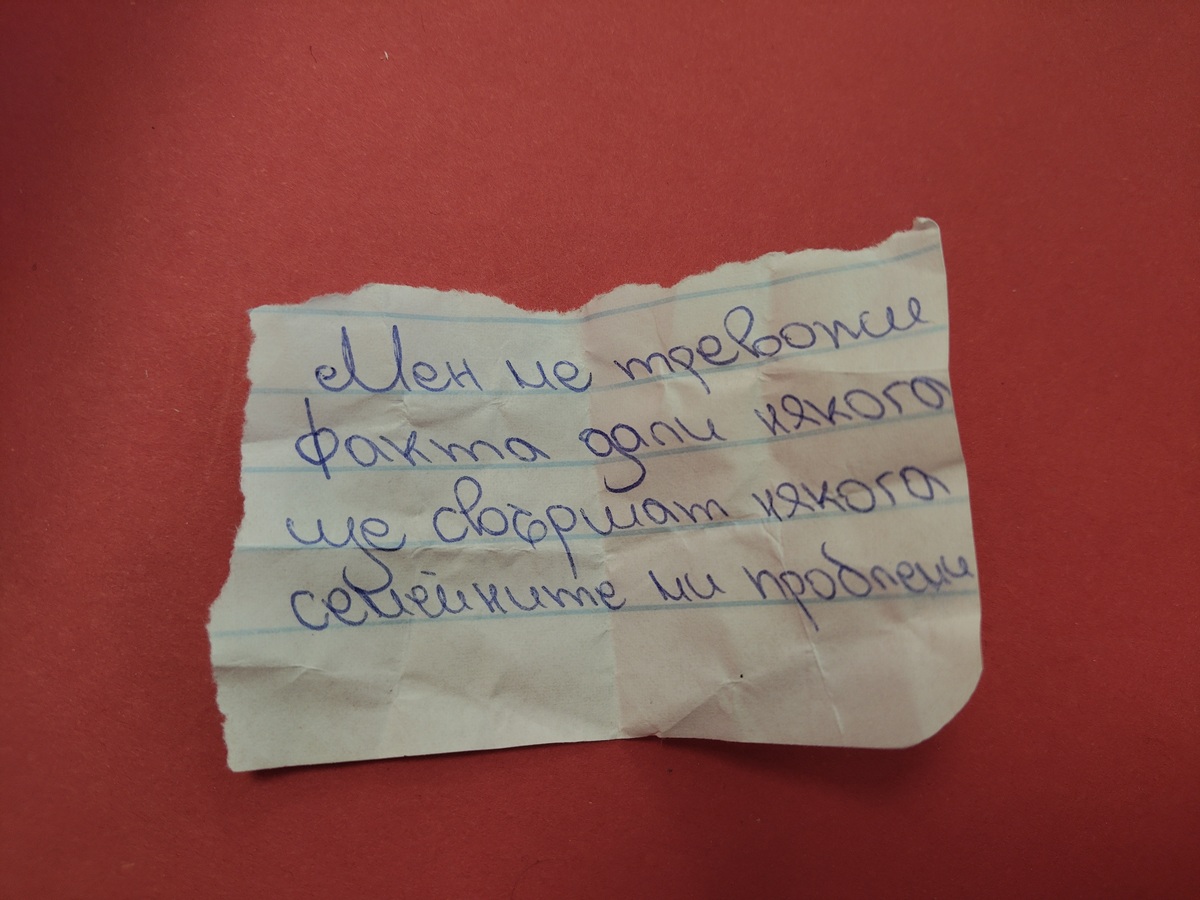 Мен ме тревожи
факта дали някога
ще свършат някога
семейните ми проблеми